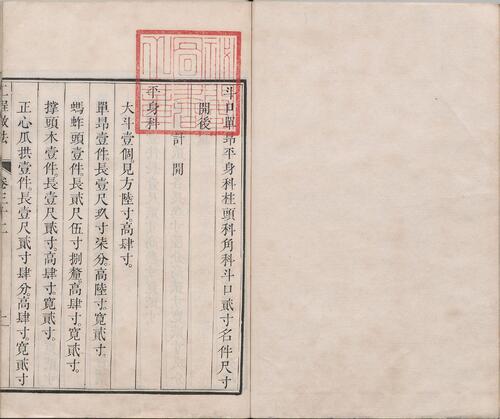 斗口單昂平身科柱頭科角科斗口貳寸名件尺寸
開後
計開
平身科
大斗壹個。見方陸寸。高肆寸。
單昂壹件。長壹尺玖寸柒分。高陸寸。寬貳寸。
螞蚱頭壹件。長貳尺伍寸捌釐。高肆寸。寬貳寸。
撐頭木壹件。長壹尺貳寸。高肆寸。寬貳寸。
正心瓜拱壹件。長壹尺貳寸肆分。高肆寸。寬貳寸
工程做法
卷三十二